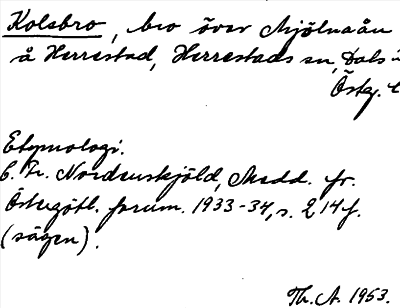 Kolsbro, bro över Mjölnaån
å Herrestad, Herrestads sn, Dals
Östg.
Etymologi.
C. Fr. Nordenskjöld, Medd. fr.
Östergötl. fornm. 1933-34, s. 214f.
(sägen).
Th. A. 1953.